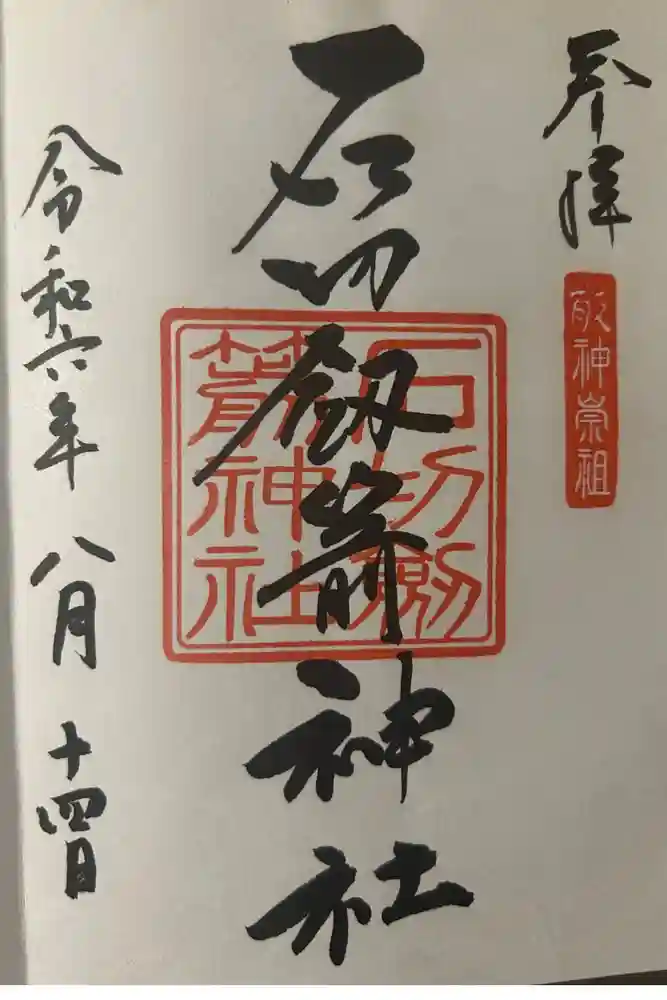 奉拝
敬神崇祖
石切劔箭神社
石切劔
箭神社
令和六年 八月 十四日